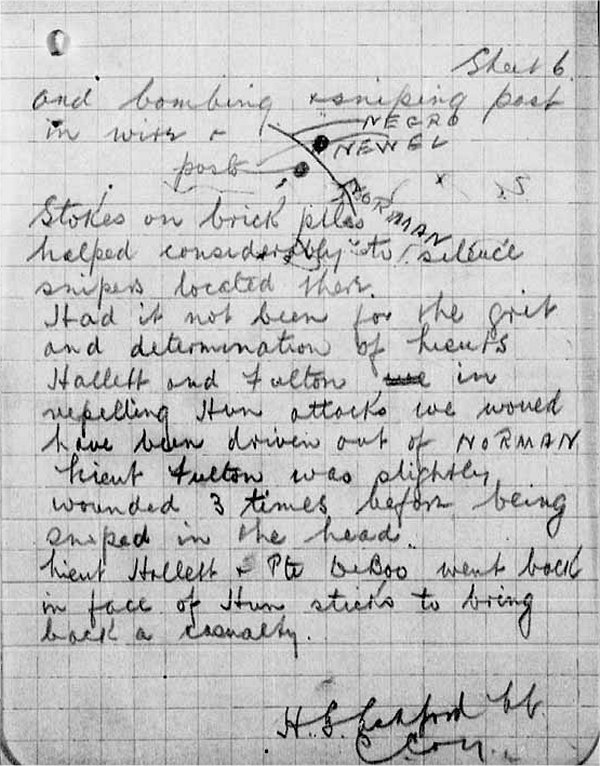 Sheet 6.
and bombing & sniping post
in wire &
NEGRO
NEWEL
post
NORMAN
Stokes on brick piles
helped considerably to silence
snipers located there.
Had it not been for the grit
and determination of Lieuts
Hallett and Fulton in
repelling Hun attacks we would
have been driven out of NORMAN
Lieut Fulton was slightly
wounded 3 times before being
sniped in the head.
Lieut Hallett & Pte DeBoo went back
in face of Hun sticks to bring
back a casualty.
H. G.
C Coy.